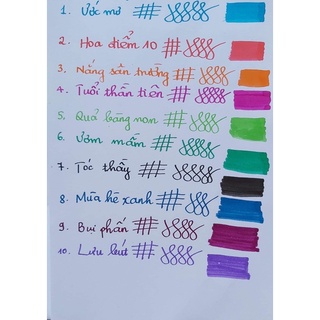 1. Ước mơ
2. Hoa điểm 10
3. Nắng sân trường
4. Tuổi thần tiên
5. Quả bàng non
6. Ươm mầm
7. Tóc thầy
8. Mùa hè xanh
9. Bụi phấn
10. Lưu bút